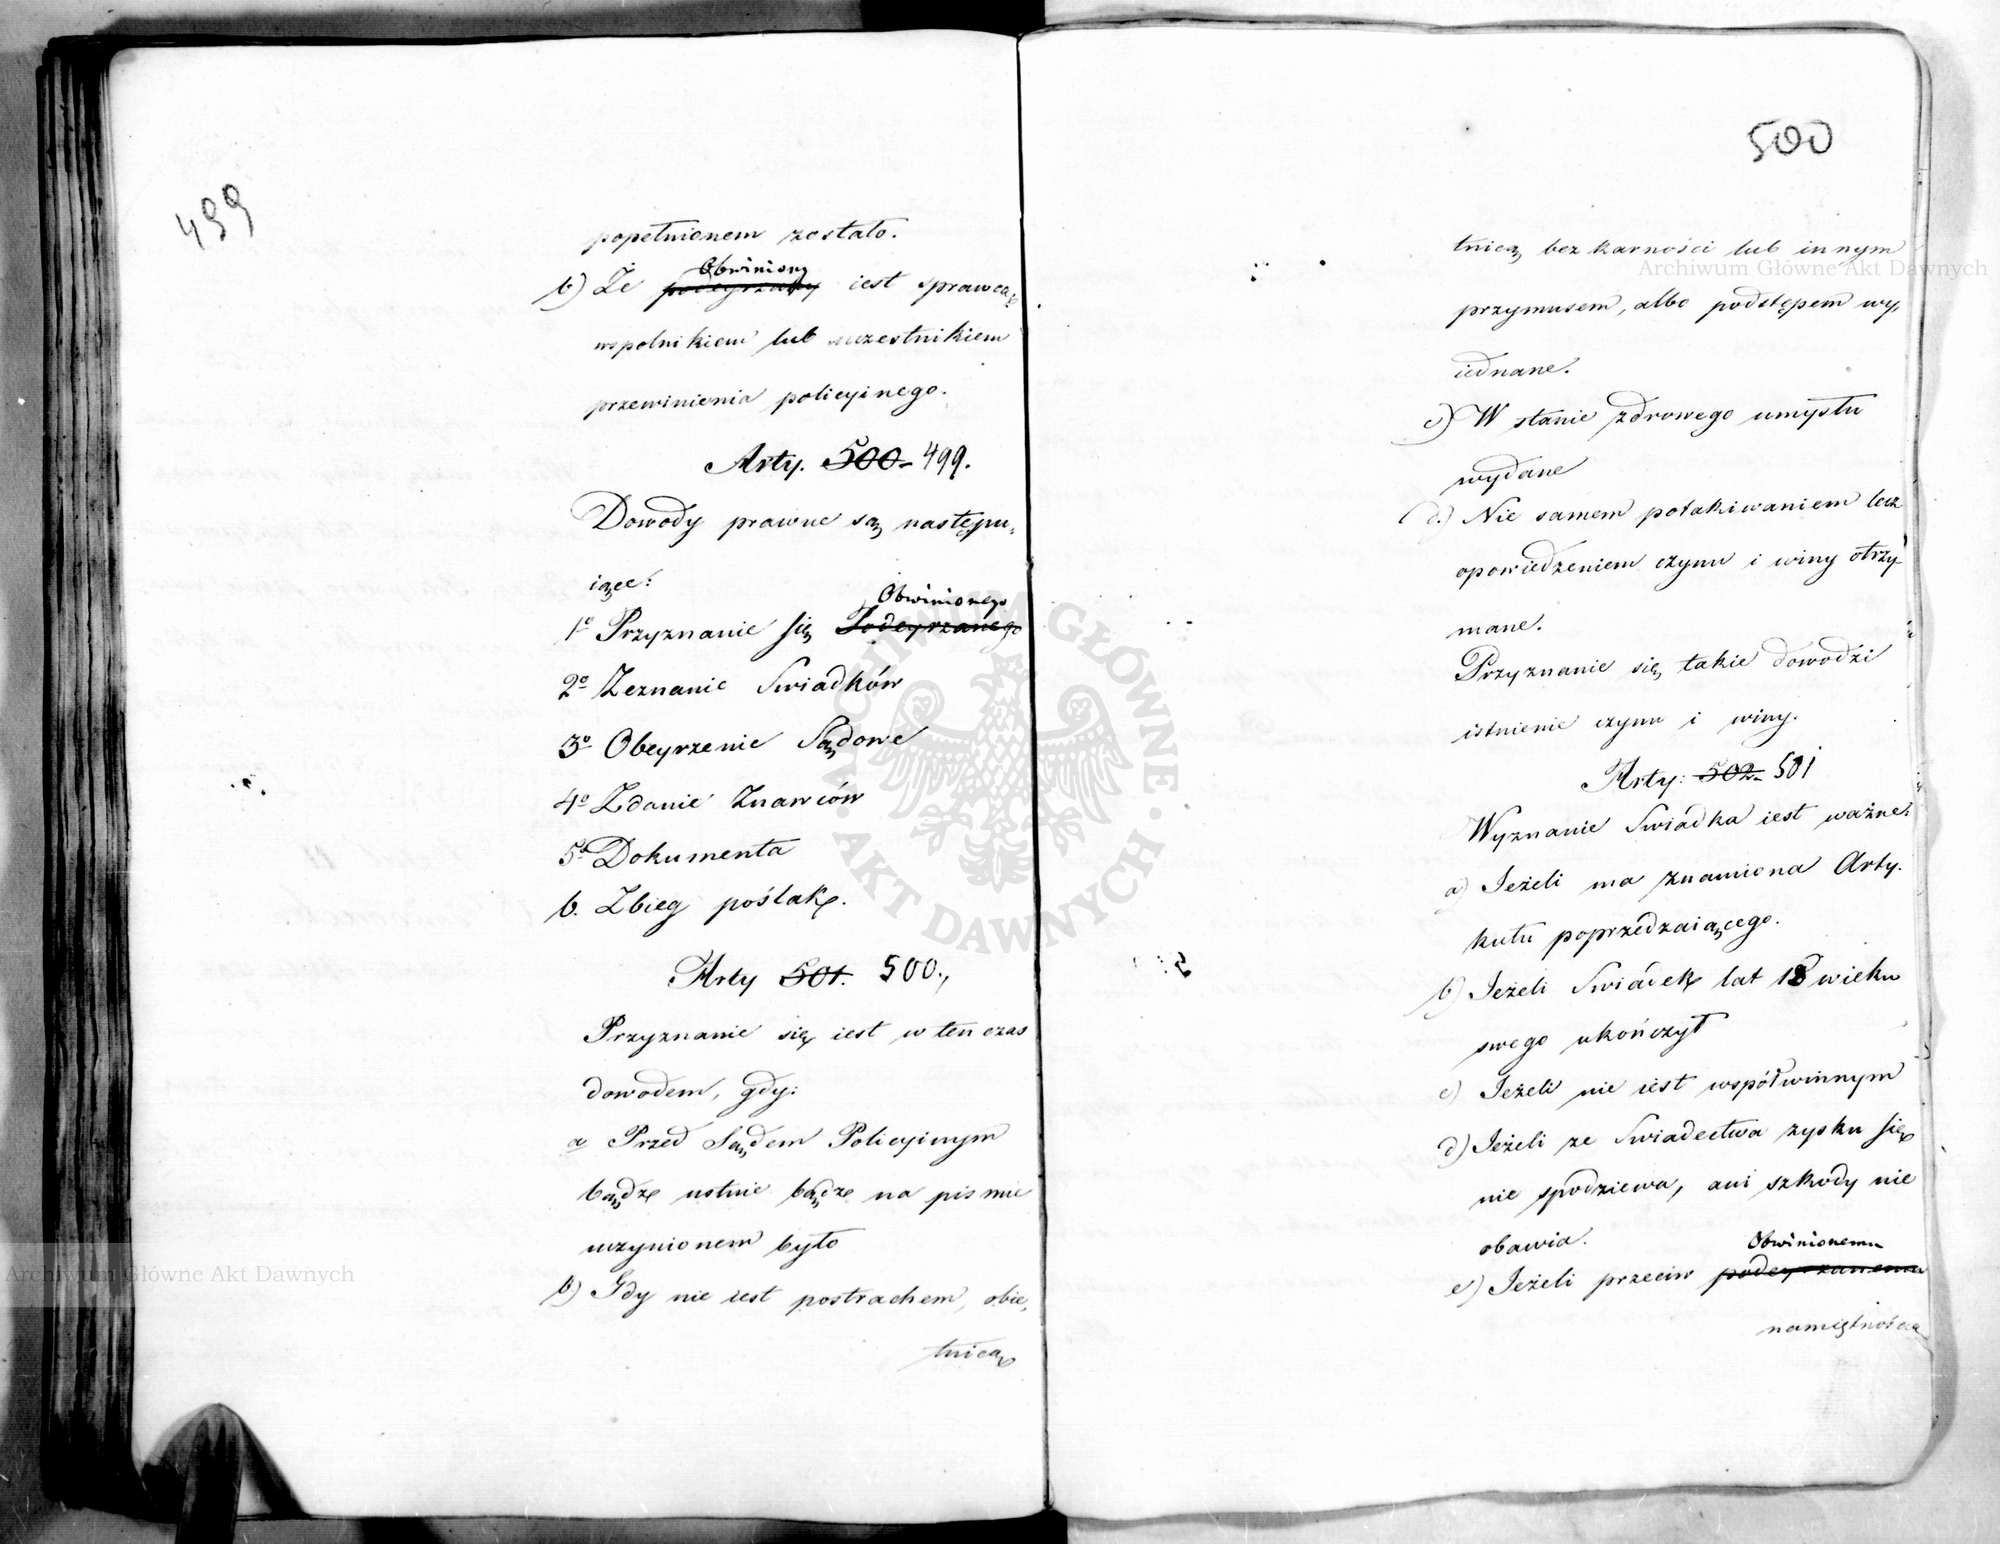 499
popełnionem zostało.
b) Że podeyrzany Obwiniony iest sprawcą,
wspolnikiem lub uczestnikiem
przewinienia policyinego.
Arty. 500. 499.
Dowody prawne są następu,
iące:
1º Przyznanie się Podeyrzanego Obwinionego
2º Zeznanie Swiadków
3º Obeyrzenie Sądowe
4º Zdanie Znawców
5º Dokumenta
6. Zbieg poślak.
Arty 501. 500.,
Przyznanie się iest w ten czas
dowodem, gdy:
a Przed Sądem Policyinym
bądz ustnie bądz na pismie
uczynionem było
b) Gdy nie iest postrachem, obie,
tnicą
500
tnicą bezkarności lub innym
przymusem, albo podstępem wy,
iednane.
c) W stanie zdrowego umysłu
wydane
d.) Nie samem potakiwaniem lecz
opowiedzeniem czynu i winy otrzy-
mane.
Przyznanie się takie dowodzi
istnienie czynu i winy.
Arty: 502. 501
Wyznanie Swiadka iest ważne:
a) Jeżeli ma znamiona Arty.
kułu poprzedzaiącego.
b) Jeżeli Swiadek lat 18 wieku
swego ukończył
c) Jeżeli nie iest współwinnym
d) Jeżeli ze Swiadectwa zysku się
nie spodziewa, ani szkody nie
obawia.
e) Jeżeli przeciw podeyrzanemu Obwinionemu
namiętnością
Archiwum Główne Akt Dawnych
Archiwum Główne Akt Dawnych
ARCHIWUM GŁÓWNE · AKT DAWNYCH ·